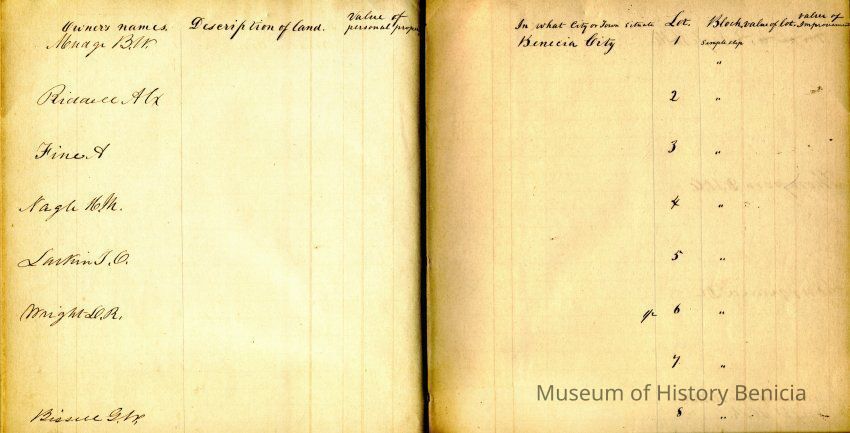 Owner's names. Description of land. Value of personal proper In what City or Town Situate Lot. Block, value of lot. value of Improvement
Mudge B.W. Benecia City 1
"
Riddell A 2 "
Fine A 3 "
Nagle H.M. 4 "
Larkin T.O. 5 "
Wright D.R. 6 "
7 "
Bissell G.W. 8 "
Museum of History Benicia